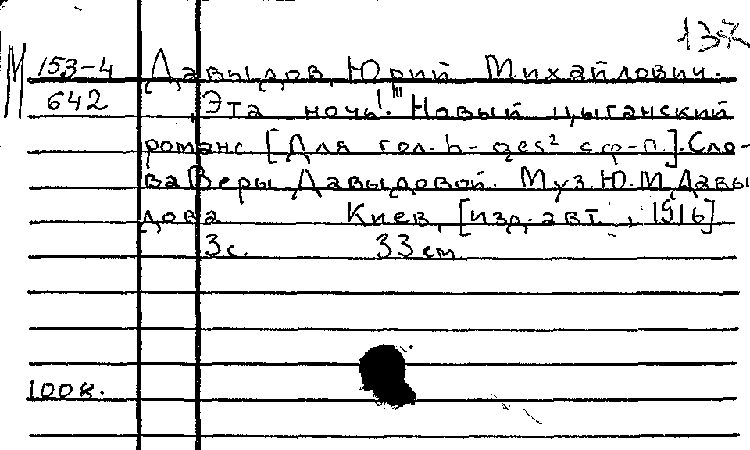 137
М 153-4 Давыдов, Юрий Михайлович.
642 "Эта ночь!..." Новый цыганский
романс. [Для гол. h-ges² с ф-п.]. Сло-
ва Веры Давыдовой. Муз. Ю. М. Давы
дова Киев, [изд. авт., 1916]
3 с. 33 cm
100 к.